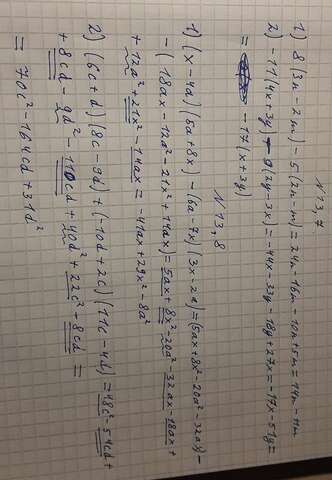 N 13, 7
1) 8(3n - 2m) - 5(2n - m) = 24n - 16m - 10n + 5m = 14n - 11m
2) -11(4x + 3y) - 9(2y - 3x) = -44x - 33y - 18y + 27x = -17x - 51y =
= -17(x + 3y)
N 13, 8
1) (x - 4a)(5a + 8x) - (6a - 7x)(3x - 2a) = (5ax + 8x² - 20a² - 32ax) -
- (18ax - 12a² - 21x² + 14ax) = 5ax + 8x² - 20a² - 32ax - 18ax +
+ 12a² + 21x² - 14ax = -41ax + 29x² - 8a²
2) (6c + d)(8c - 9d) + (-10d + 2c)(11c - 4d) = 48c² - 54cd +
+ 8cd - 9d² - 110cd + 40d² + 22c² - 8cd =
= 70c² - 164cd + 31d²